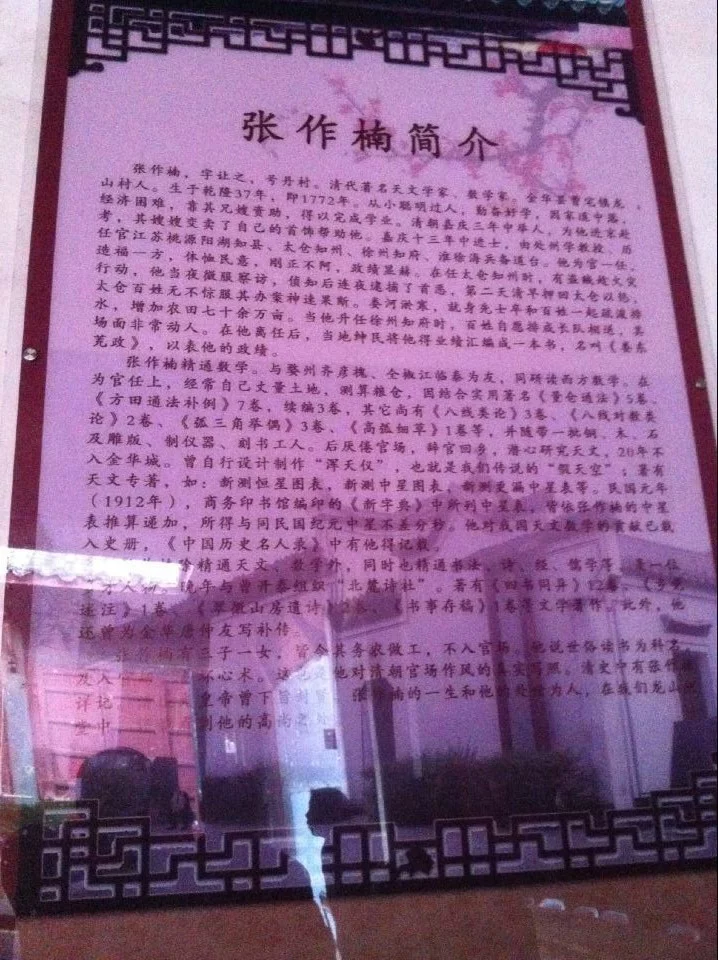 张作楠简介
张作楠，字让之，号丹村。清代著名天文学家、数学家。金华县曹宅镇龙
山村人。生于乾隆37年，即1772年。从小聪明过人，勤奋好学，因家道中落，
经济困难，靠其兄嫂资助，得以完成学业。清朝嘉庆三年中举人，为他进京赴
考，其嫂嫂变卖了自己的首饰帮助他。嘉庆十三年中进士，由处州学教授、历
任官江苏桃源阳湖知县、太仓知州、徐州知府、淮徐海兵备道台。他为官一任，
造福一方，体恤民意，刚正不阿，政绩显赫。在任太仓知州时，有盗贼趁火灾
行动，他当夜微服察访，侦知后连夜逮捕了首恶，第二天清早押回太仓以惩，
太仓百姓无不惊服其办案神速果断。娄河淤寒，就身先士卒和百姓一起疏浚排
水，增加农田七十余万亩。当他升任徐州知府时，百姓自愿排成长队相送，其
场面非常动人。在他离任后，当地绅民将他得业绩汇编成一本书，名叫《娄东
荒政》，以表他的政绩。
张作楠精通数学。与婺州齐彦槐、全椒江临泰为友，同研读西方数学。在
为官任上，经常自己丈量土地，测算粮仓，因结合实用著名《量仓通法》5卷、
《方田通法补例》7卷，续编3卷，其它尚有《八线类论》3卷、《八线对数类
论》2卷、《弧三角举偶》3卷、《高弧细草》1卷等，并随带一批铜、木、石
及雕版、制仪器、刻书工人。后厌倦官场，辞官回乡，潜心研究天文，20年不
入金华城。曾自行设计制作“浑天仪”，也就是我们传说的“假天空”；著有
天文专著，如：新测恒星图表，新测中星图表，新测更漏中星表等。民国元年
（1912年），商务印书馆编印的《新字典》中所列中星表，皆依张作楠的中星
表推算递加，所得与同民国纪元中星不差分秒。他对我国天文数学的贡献已载
入史册，《中国历史名人录》中有他得记载。
除精通天文、数学外，同时也精通书法、诗、经、儒学等。是一位
多方人才。晚年与曾开泰组织“北麓诗社”。著有《四书同异》12卷、《乡党
述注》1卷、《翠微山房遗诗》2卷、《书事存稿》1卷等文学著作。此外，他
还曾为金华唐仲友写补传。
张作楠有三子一女，皆令其务农做工，不入官场。他说世俗读书为科名，
及入 坏心术。这也是他对清朝官场作风的真实写照。清史中有张作楠
详记。 皇帝曾下旨 张作楠的一生和他的处世为人，在我们龙山
堂中 到他的高尚